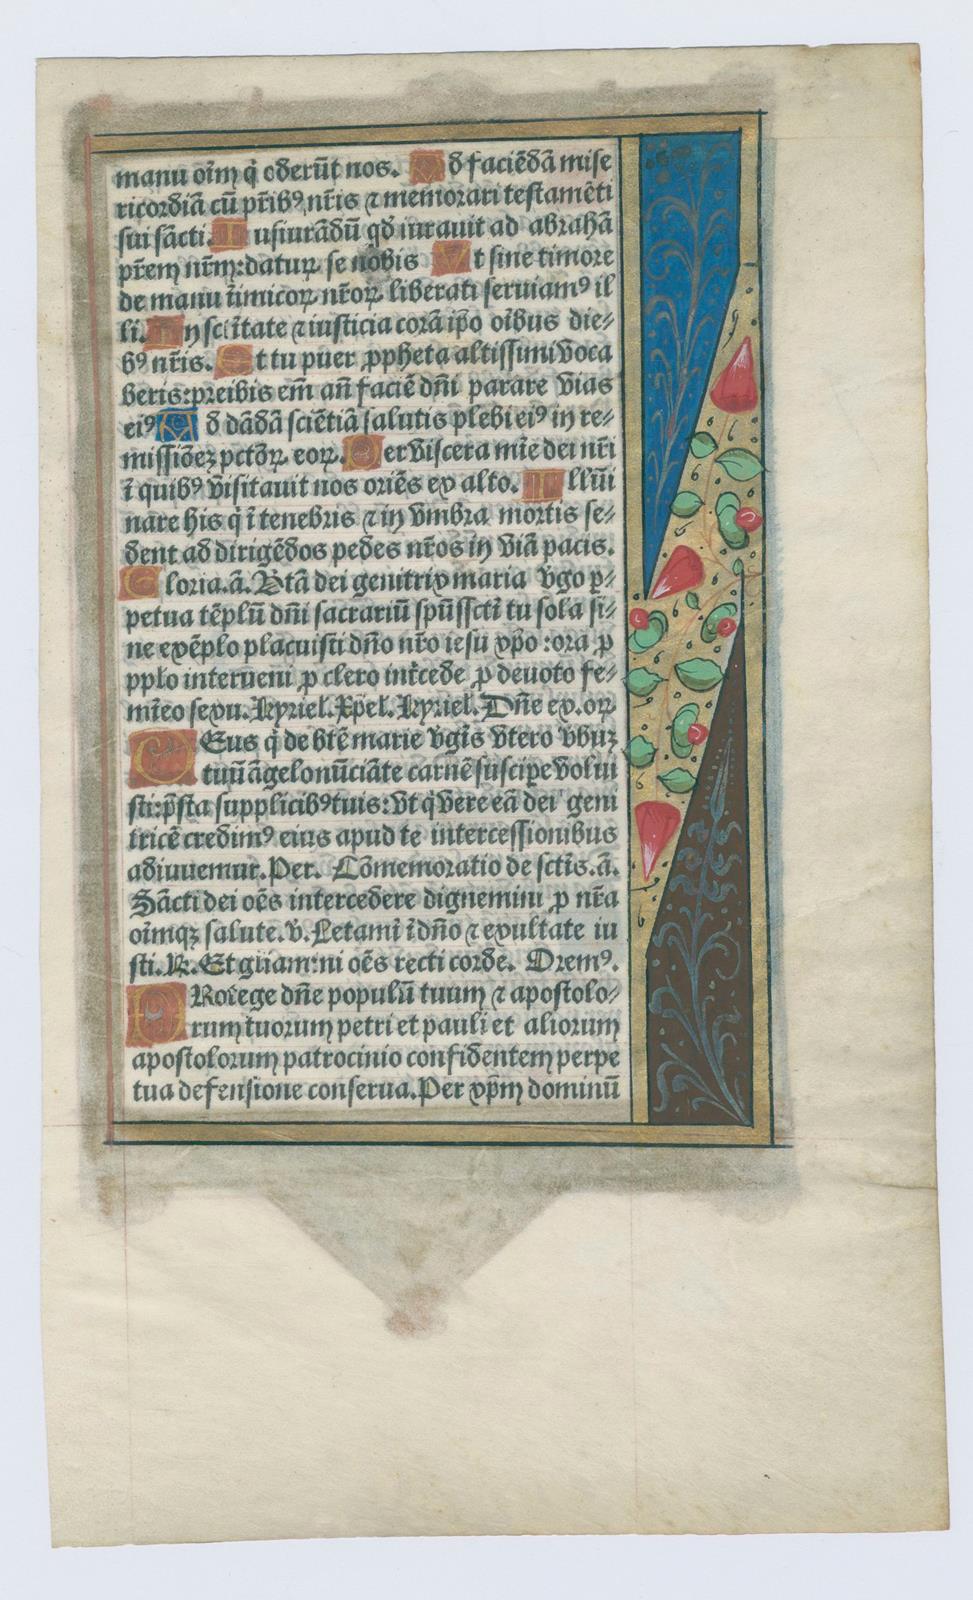 manu oīm q̄ oderūt nos. Ad faciēdā mise
ricordiā cū pr̄ibꝰ nr̄is ⁊ memorari testamēti
sui sācti. Iusiurādū qd̄ iurauit ad abrahā
pr̄em nr̄m: daturꝝ se nobis Vt sine timore
de manu īimicoꝝ nr̄oꝝ liberati seruiamꝰ il
li. In sc̄titate ⁊ iusticia corā ip̄o oībus die⸗
bꝰ nr̄is. Et tu puer ꝓpheta altissimi voca
beris: preibis em̄ an̄ faciē dn̄i parare vias
eiꝰ Ad dādā sciētiā salutis plebi eiꝰ in re⸗
missiōeꝫ pctōꝝ eoꝝ. Per viscera mīe dei nr̄i
ī quibꝰ visitauit nos oriēs ex alto. Illūi
nare his q̄ ī tenebris ⁊ in vmbra mortis se⸗
dent ad dirigēdos pedes nr̄os in viā pacis.
Gloria. ā. Btā dei genitrix maria v̄go ꝑ⸗
petua tēplū dn̄i sacrariū spūssctī tu sola si⸗
ne exēplo placuisti dn̄o nr̄o iesu xp̄o: ora ꝓ
pplo interueni ꝓ clero int̄cede ꝓ deuoto fe⸗
mīeo sexu. Kyriel. Xp̄el. Kyriel. Dn̄e ex. or̄
DEus q̄ de btē marie v̄gīs vtero v̄buꝫ
tuū āgelo nūciāte carnē suscipe volui
sti: p̄sta supplicibꝰ tuis: vt q̄ vere eā dei geni
tricē credimꝰ eius apud te intercessionibus
adiuuemur. Per. Cōmemoratio de sctīs. ā.
Sācti dei oēs intercedere dignemini ꝓ nr̄a
oīmqꝫ salute. v̄. Letamī ī dn̄o ⁊ exultate iu
sti. R̄. Et gliamini oēs recti corde. Oremꝰ.
PRotege dn̄e populū tuum ⁊ apostolo⸗
rum tuorum petri et pauli et aliorum
apostolorum patrocinio confidentem perpe
tua defensione conserua. Per xp̄m dominū